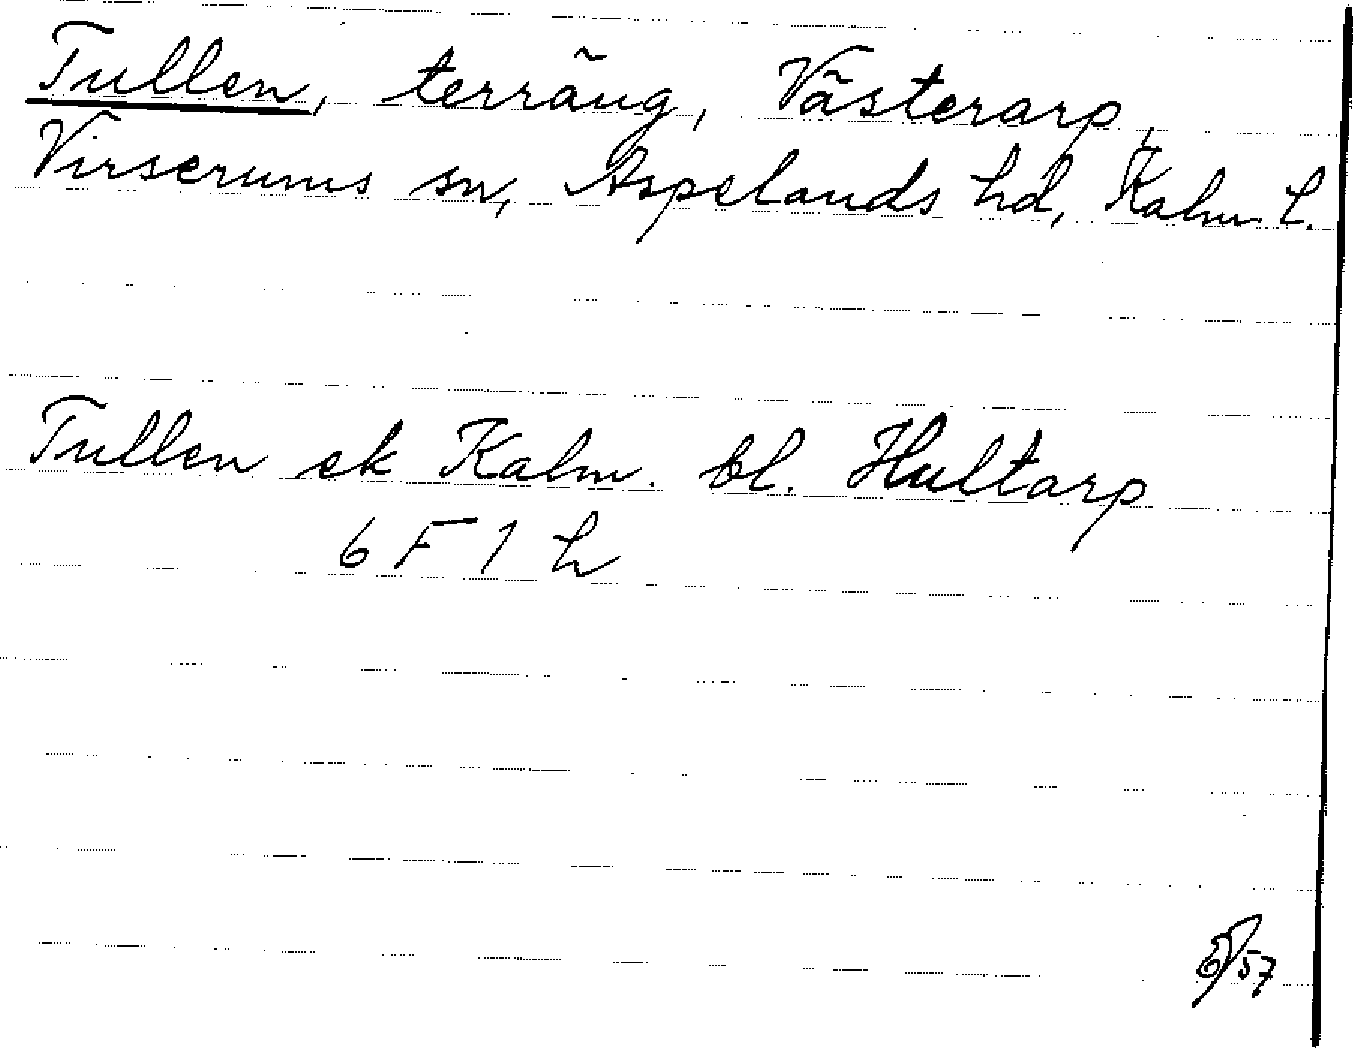 Tullen, terräng, Västerarp,
Virserums sn, Aspelands hd, Kalm. l.
Tullen ek Kalm. bl. Hultarp
6 F 1 h